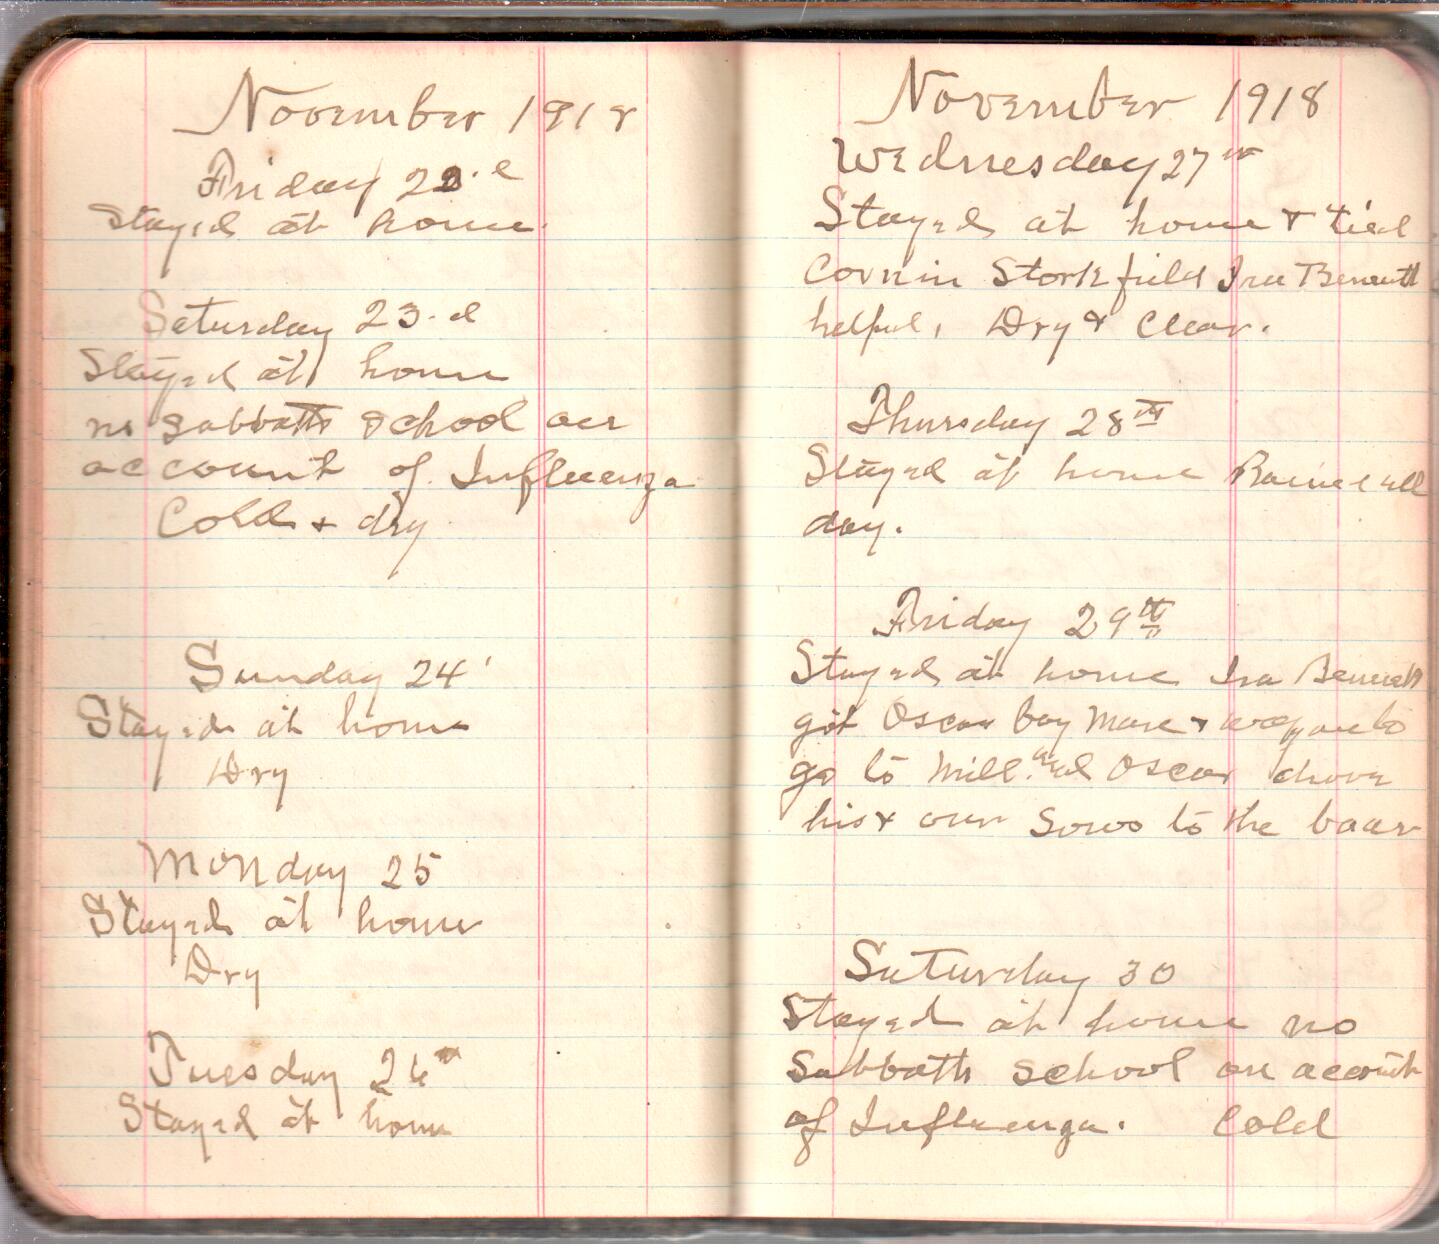 November 1918
Friday 22.d
Stayed at home.
Saturday 23.d
Stayed at home
no Sabbath School on
account of Influenza
Cold & dry
Sunday 24
Stayed at home
Dry
Monday 25
Stayed at home
Dry
Tuesday 26th
Stayed at home
November 1918
Wednesday 27th
Stayed at home & tied
Corn in Stork field Ira Bennett
helped. Dry & Clear.
Thursday 28th
Stayed at home Rained all
day.
Friday 29th
Stayed at home Ira Bennett
got Oscar bay Mare & wagon to
go to Mill. and Oscar drove
his & our Sows to the boar
Saturday 30
Stayed at home no
Sabbath School on account
of Influenza. Cold